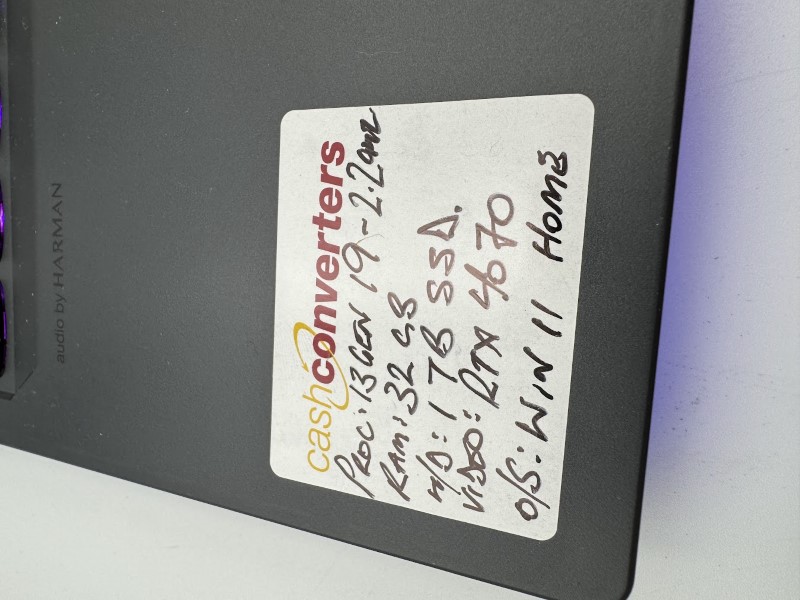 audio by HARMAN
cash converters
PROC: 13GEN i9 ~ 2.2GHZ
RAM: 32 GB
H/D: 1 TB SSD.
VIDEO: RTX 4070
O/S: WIN 11 HOME